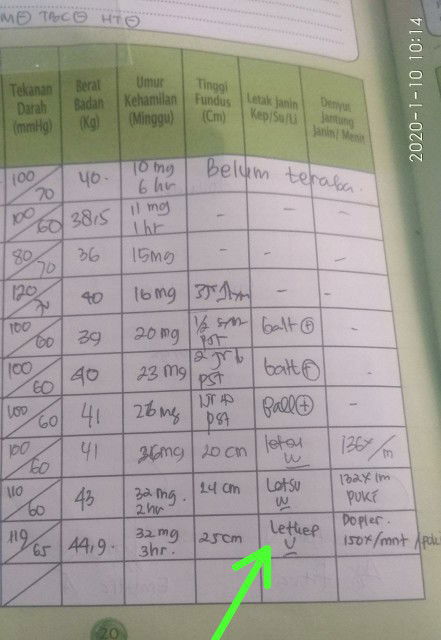 M⊖ TBC⊖ HT⊖
2020-1-10 10:14
Tekanan Darah (mmHg) Berat Badan (Kg) Umur Kehamilan (Minggu) Tinggi Fundus (Cm) Letak Janin Kep/Su/Li Denyut Jantung Janin/ Menit
100/70 40. 10 mg 6 hr Belum teraba.
100/60 38,5 11 mg 1 hr - - -
80/70 36 15mg - - -
120/ 40 16mg - -
100/60 39 20 mg 1/2 pst ball ⊕ -
100/60 40 23 mg 2 pst ball ⊕ -
100/60 41 26mg pst Ball⊕ -
100/60 41 36mg 20 cm U 136x/m
110/60 43 32 mg. 2hr 24 cm Letsu U 132x 1m PUKI
110/65 44,9. 32 mg 3hr. 25cm Letkep U Dopler. 150x/mnt
20